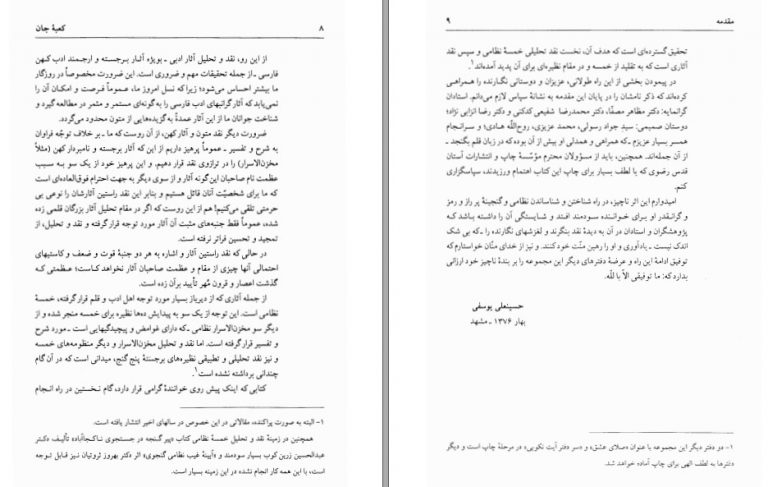 ۸ کعبهٔ جان
از این رو، نقد و تحلیل آثار ادبی ـ بویژه آثـار بـرجسـته و ارجـمند ادب کـهن
فارسی ـ از جمله تحقیقات مهم و ضروری است. این ضرورت مخصوصاً در روزگار
ما بیشتر احساس می‌شود؛ زیرا که نسل امروز ما، عـموماً فـرصت و امکـان آن را
نمی‌یابد که آثار گرانبهای ادب فارسی را به‌گونه‌ای مستمر و مثمر در مطالعه گیرد و
شناخت جوانان ما از این آثار عمدةً به گزیده‌هایی از متون محدود می‌گردد.
ضرورت دیگر نقد متون و آثار کهن، از آن روست که ما ـ بر خلاف توجّه فراوان
به شرح و تفسیر ـ عموماً پرهیز داریم از این که آثار برجسته و نامبردار کهن (مثلاً
مخزن‌الاسرار) را در ترازوی نقد قرار دهیم. و این پرهیز خود از یک سو به سبب
عظمت نام صاحبان این‌گونه آثار و از سوی دیگر به جهت احترام فوق‌العاده‌ای است
که ما برای شخصیّت آنان قائل هستیم و بنابر این نقد راستین آثارشان را نوعی بی
حرمتی تلقی می‌کنیم! هم از این روست که اگر در مقام تحلیل آثار بزرگان قلمی زده
شده، عموماً فقط جنبه‌های مثبت آن آثار مورد توجه قرار گرفته و نقد و تحلیل، از
تمجید و تحسین فراتر نرفته است.
در حالی که نقد راستین آثار و اشاره به هر دو جنبهٔ قوت و ضعف و کاستیهای
احتمالی آنها چیزی از مقام و عظمت صاحبان آثار نخواهد کاست؛ عـظمتی کـه
گذشت اعصار و قرون مُهر تأیید برآن زده است.
از جمله آثاری که از دیرباز بسیار مورد توجه اهل ادب و قلم قرار گرفته، خمسهٔ
نظامی است. این توجه از یک سو به پیدایش ده‌ها نظیره برای خمسه منجر شده و از
دیگر سو مخزن‌الاسرار نظامی ـ که دارای غوامض و پیچیدگیهایی است ـ مورد شرح
و تفسیر قرار گرفته است. اما نقد و تحلیل مخزن‌الاسرار و دیگر منظومه‌های خمسه
و نیز نقد تحلیلی و تطبیقی نظیره‌های برجستهٔ پنج گنج، میدانی است که در آن گام
چندانی برداشته نشده است.۱
کتابی که اینک پیش روی خوانندهٔ گرامی قرار دارد، گام نخستین در راه انجام
۱- البته به صورت پراکنده، مقالاتی در این خصوص در سالهای اخیر انتشار یافته است.
همچنین در زمینهٔ نقد و تحلیل خمسهٔ نظامی کتاب «پیر گنجه در جستجوی ناکجاآباد» تألیف دکتر
عبدالحسین زرین کوب بسیار سودمند و «آیینهٔ غیب نظامی گنجوی» اثر دکتر بهروز ثروتیان نیز قـابل تـوجه
است، با این همه کار انجام نشده در این زمینه بسیار است.
مقدمه ۹
تحقیق گسترده‌ای است که هدف آن، نخست نقد تحلیلی خمسهٔ نظامی و سپس نقد
آثاری است که به تقلید از خمسه و در مقام نظیره‌ای برای آن پدید آمده‌اند.۱
در پیمودن بخشی از این راه طولانی، عزیزان و دوستانی نگارنده را همراهی
کرده‌اند که ذکر نامشان را در پایان این مقدمه به نشانهٔ سپاس لازم می‌دانم. استادان
گرانمایه: دکتر مظاهر مصفّا، دکتر محمدرضا شفیعی کدکنی و دکتر رضا انزابی نژاد؛
دوستان صمیمی: سید جواد رسولی، محمد عزیزی، روح‌اللّه هـادی؛ و سـرانـجام
همسر بسیار عزیزم ـ که همراهی و همدلی او بیش از آن بوده که در زبان قلم بگنجد ـ
از آن جمله‌اند. همچنین، باید از مسؤولان محترم مؤسّسهٔ چاپ و انتشارات آستان
قدس رضوی که با لطف بسیار برای چاپ این کتاب اهتمام ورزیدند، سپاسگزاری
کنم.
امیدوارم این اثر ناچیز، در راه شناختن و شناساندن نظامی و گنجینهٔ پر راز و رمز
و گرانـقدر او بـرای خـواننده سـودمند افـتد و شـایستگی آن را داشـته بـاشد کـه
پژوهشگران و استادان در آن به دیدهٔ نقد بنگرند و لغزشهای نگارنده را ـ که بی شک
اندک نیست ـ یادآوری و او را رهین منّت خود کنند. و نیز از خدای منّان خواستارم که
توفیق ادامهٔ این راه و عرضهٔ دفترهای دیگر این مجموعه را بر بندهٔ ناچیز خود ارزانی
بدارد که: ما توفیقی الاّ باللّه.
حسینعلی یوسفی
بهار ۱۳۷۶ ـ مشهد
۱- دو دفتر دیگر این مجموعه با عنوان «صلای عشق» و «سر دفتر آیت نکویی» در مرحلهٔ چاپ است و دیگر
دفترها به لطف الهی برای چاپ آماده خواهد شد.